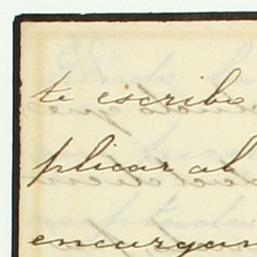 te escribo
plicar al
encargan